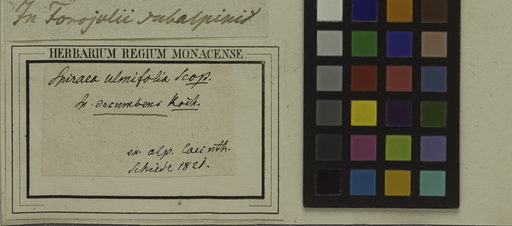 In Forojulii subalpinis
HERBARIUM REGIUM MONACENSE.
Spiraea ulmifolia Scop.
Sp. decumbens Koch.
ex alp. Carinth.
Schiede 1821.